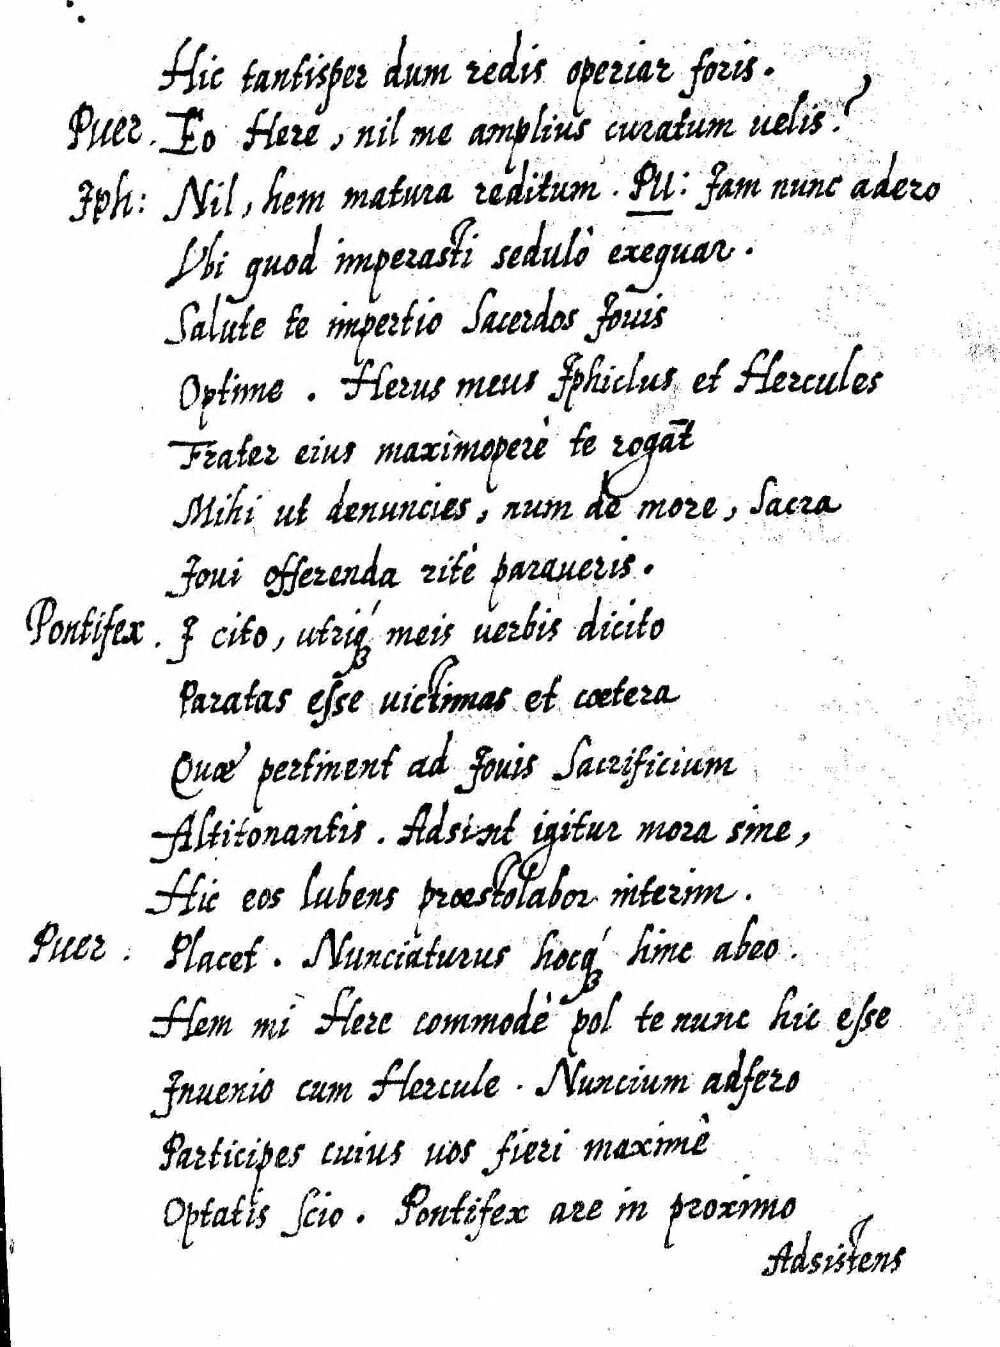 Hic tantisper dum redis operiar foris.
Puer. Eo Here, nil me amplius curatum uelis?
Jph: Nil, hem matura reditum. PU: Jam nunc adero
Vbi quod imperasti sedulò exequar.
Salute te impertio Sacerdos Jouis
Optime. Herus meus Jphiclus et Hercules
Frater eius maximoperè te rogat
Mihi ut denuncies, num de more, Sacra
Joui offerenda ritè paraueris.
Pontifex. J cito, utriq́ꝫ meis uerbis dicito
Paratas esse uictimas et cœtera
Quœ pertinent ad Jouis Sacrificium
Altitonantis. Adsint igitur mora sine,
Hic eos lubens prœstolabor interim.
Puer. Placet. Nunciaturus hocq́ꝫ hinc abeo.
Hem mi Here commodè pol te nunc hic esse
Jnuenio cum Hercule. Nuncium adfero
Participes cuius uos fieri maximê
Optatis scio. Pontifex are in proximo
Adsistens